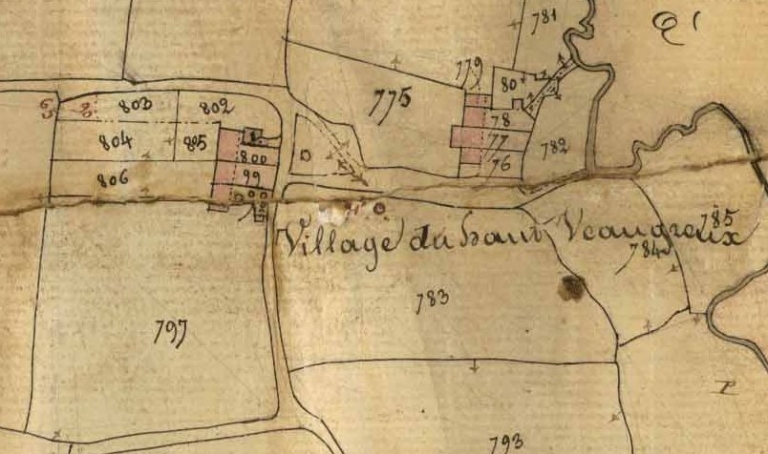 781
779
80
775
78
77
76
782
803
802
804
805
800
806
99
Village du haut Veaugreix
785
784
783
797
793